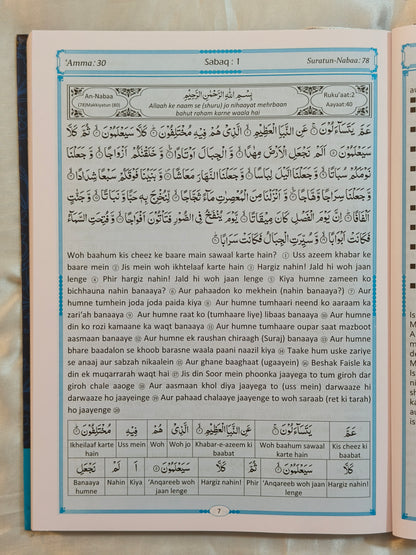 'Amma: 30
Sabaq : 1
Suratun-Nabaa: 78
An-Nabaa
(78)Makkiyatun (80)
بِسْمِ اللّٰهِ الرَّحْمٰنِ الرَّحِيْمِ
Allaah ke naam se (shuru) jo nihaayot mehrbaan
bahut raham karne waala hai
Ruku'aat:2
Aayaat:40
عَمَّ يَتَسَآءَلُوْنَ ۝١ عَنِ النَّبَاِ الْعَظِيْمِ ۝٢ الَّذِيْ هُمْ فِيْهِ مُخْتَلِفُوْنَ ۝٣ كَلَّا سَيَعْلَمُوْنَ ۝٤ ثُمَّ كَلَّا
سَيَعْلَمُوْنَ ۝٥ اَلَمْ نَجْعَلِ الْاَرْضَ مِهٰدًا ۝٦ وَّ الْجِبَالَ اَوْتَادًا ۝٧ وَّ خَلَقْنٰكُمْ اَزْوَاجًا ۝٨ وَّ جَعَلْنَا
نَوْمَكُمْ سُبَاتًا ۝٩ وَّ جَعَلْنَا الَّيْلَ لِبَاسًا ۝١٠ وَّ جَعَلْنَا النَّهَارَ مَعَاشًا ۝١١ وَّ بَنَيْنَا فَوْقَكُمْ سَبْعًا شِدَادًا ۝١٢
وَّ جَعَلْنَا سِرَاجًا وَّهَّاجًا ۝١٣ وَّ اَنْزَلْنَا مِنَ الْمُعْصِرٰتِ مَآءً ثَجَّاجًا ۝١٤ لِّنُخْرِجَ بِهٖ حَبًّا وَّ نَبَاتًا ۝١٥ وَّ جَنّٰتٍ
اَلْفَافًا ۝١٦ اِنَّ يَوْمَ الْفَصْلِ كَانَ مِيْقَاتًا ۝١٧ يَّوْمَ يُنْفَخُ فِي الصُّوْرِ فَتَاْتُوْنَ اَفْوَاجًا ۝١٨ وَّ فُتِحَتِ السَّمَآءُ
فَكَانَتْ اَبْوَابًا ۝١٩ وَّ سُيِّرَتِ الْجِبَالُ فَكَانَتْ سَرَابًا ۝٢٠
Woh baahum kis cheez ke baare main sawaal karte hain? ① Uss azeem khabar ke
baare mein ② Jis mein woh ikhtelaaf karte hain ③ Hargiz nahin! Jald hi woh jaan
lenge ④ Phir hargiz nahin! Jald hi woh jaan lenge ⑤ Kiya humne zameen ko
bichhauna nahin banaaya? ⑥ Aur pahaadon ko mekhein (nahin banaaya?) ⑦ Aur
humne tumhein joda joda paida kiya ⑧ Aur humne tumhaari neend ko aaraam ka
zari'ah banaaya ⑨ Aur humne raat ko (tumhaare liye) libaas banaaya ⑩ Aur humne
din ko rozi kamaane ka waqt banaaya ⑪ Aur humne tumhaare oupar saat mazboot
aasmaan banaaye ⑫ Aur humne ek raushan chiraagh (Suraj) banaaya ⑬ Aur humne
bhare baadalon se khoob barasne waala paani naazil kiya ⑭ Taake hum uske zariye
se anaaj aur sabzah nikaalein ⑮ Aur ghane baaghaat (ugaayein) ⑯ Beshak Faisle ka
din ek muqarrarah waqt hai ⑰ Jis din Soor mein phoonka jaayega to tum giroh dar
giroh chale aaoge ⑱ Aur aasmaan khol diya jaayega to (uss mein) darwaaze hi
darwaaze ho jaayeinge ⑲ Aur pahaad chalaaye jaayenge to woh saraab (ret ki tarah)
ho jaayenge ⑳
عَمَّ يَتَسَآءَلُوْنَ ۝١ عَنِ النَّبَاِ الْعَظِيْمِ ۝٢ الَّذِيْ هُمْ فِيْهِ مُخْتَلِفُوْنَ ۝٣
Ikhelaaf karte hain Uss mein Woh Woh jo Khabar-e-azeem ki baabat Woh baahum sawaal karte hain Kis cheez ki baabat
كَلَّا سَيَعْلَمُوْنَ ۝٤ ثُمَّ كَلَّا سَيَعْلَمُوْنَ ۝٥ اَ لَمْ نَجْعَلِ
Banaaya humne Nahin Kiya 'Anqareeb woh jaan lenge Hargiz nahin! Phir 'Anqareeb woh jaan lenge Hargiz nahin!
7